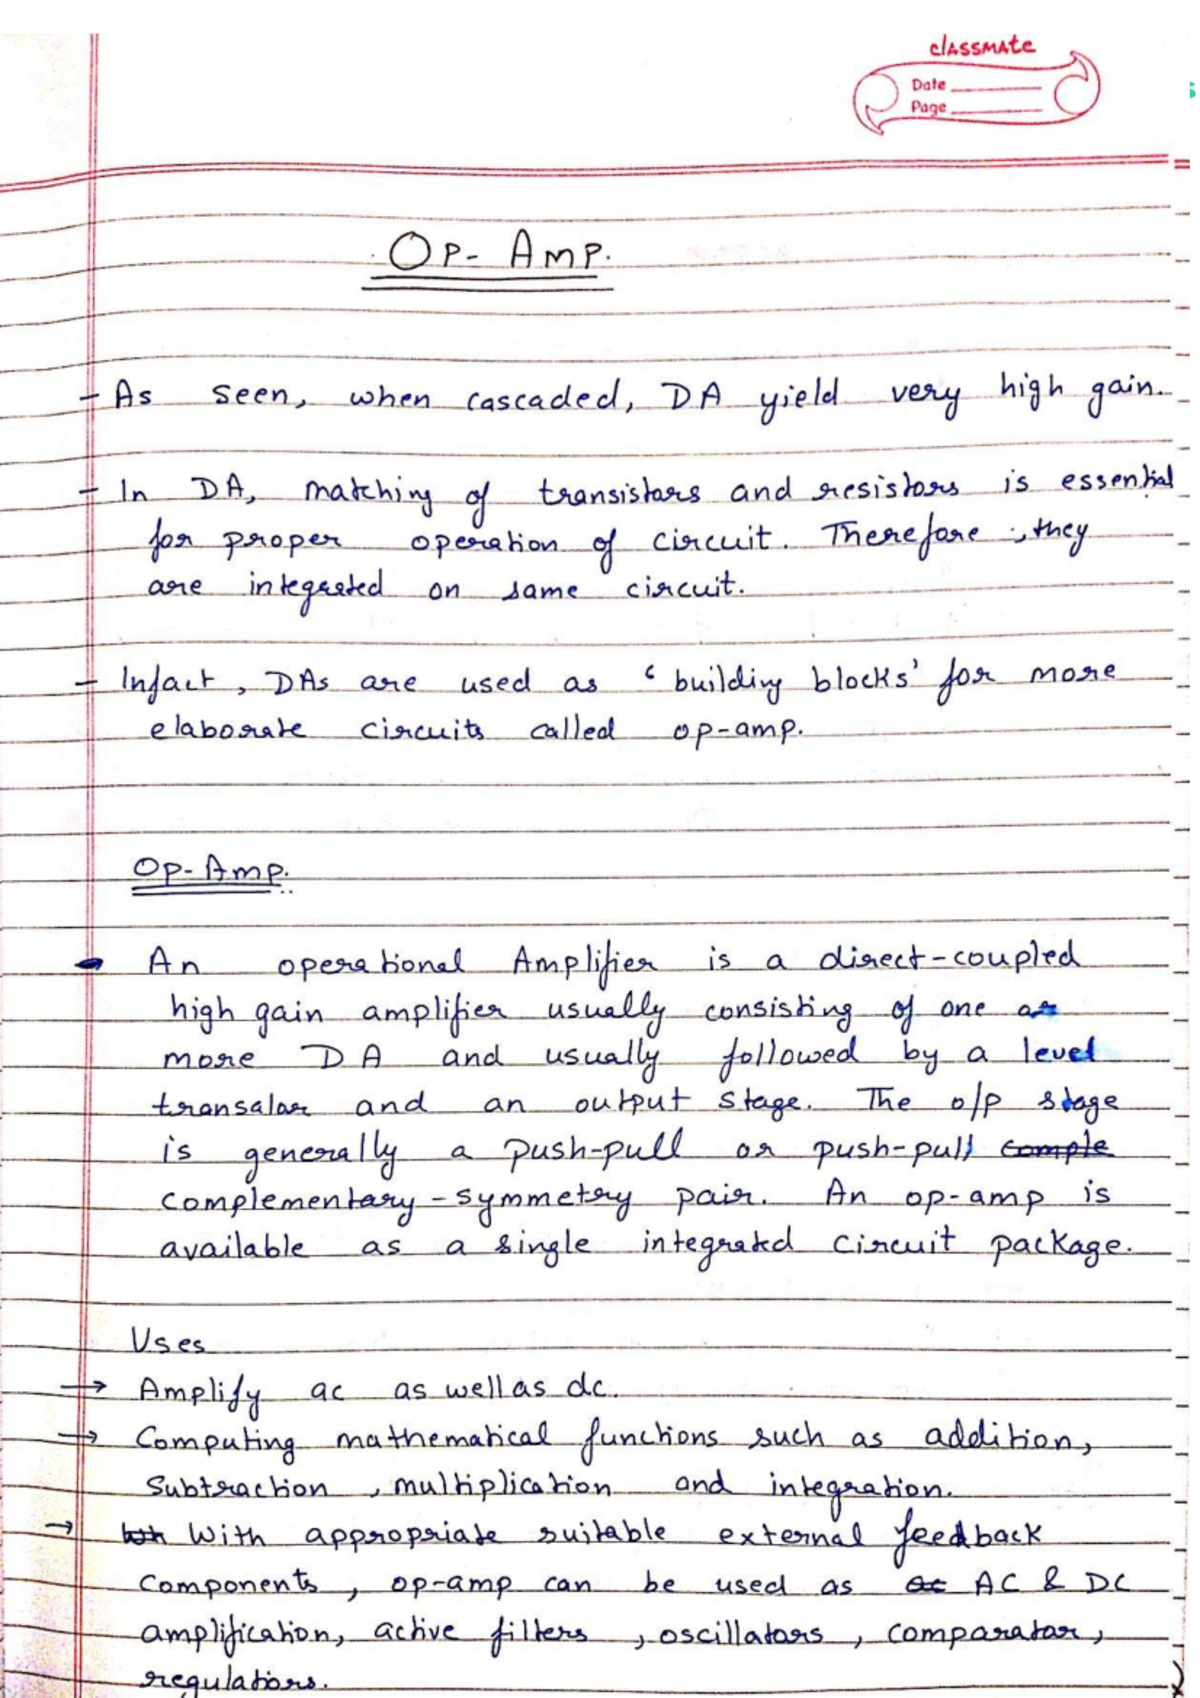 classmate
Date
Page
Op-Amp.
- As seen, when cascaded, DA yield very high gain.
- In DA, matching of transistors and resistors is essential
for proper operation of circuit. Therefore, they
are integrated on same circuit.
- Infact, DAs are used as 'building blocks' for more
elaborate circuits called op-amp.
Op-Amp.
- An operational Amplifier is a direct-coupled
high gain amplifier usually consisting of one or
more DA and usually followed by a level
transalar and an output stage. The o/p stage
is generally a push-pull or push-pull comple
complementary-symmetry pair. An op-amp is
available as a single integrated circuit package.
Uses
→ Amplify ac as well as dc.
→ Computing mathematical functions such as addition,
Subtraction, multiplication and integration.
→ With appropriate suitable external feedback
Components, op-amp can be used as AC & DC
amplification, active filters, oscillators, comparator,
regulations.